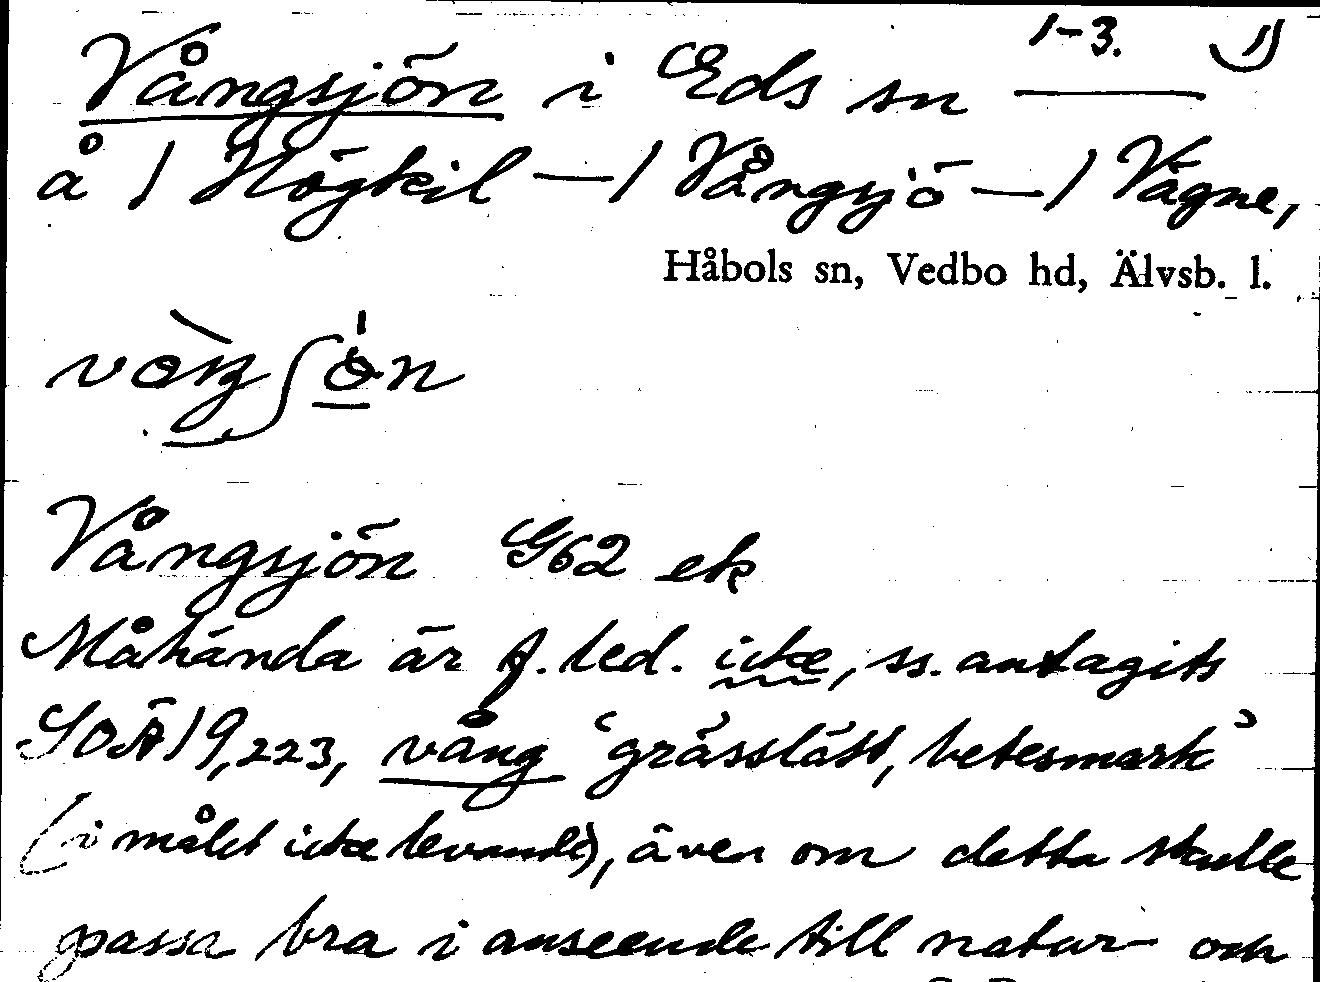 1-3. 1)
Vångsjön i Eds sn ——
å 1 Högkil — 1 Vångsjö — 1 Vägne,
Håbols sn, Vedbo hd, Älvsb. l.
Vångsjön G62 ek
Måhända är f. led. icke, ss. antagits
SOÄ 19,223, vång 'grässlätt, betesmark'
(i målet icke levande), även om detta skulle
passa bra i anseende till natur- och